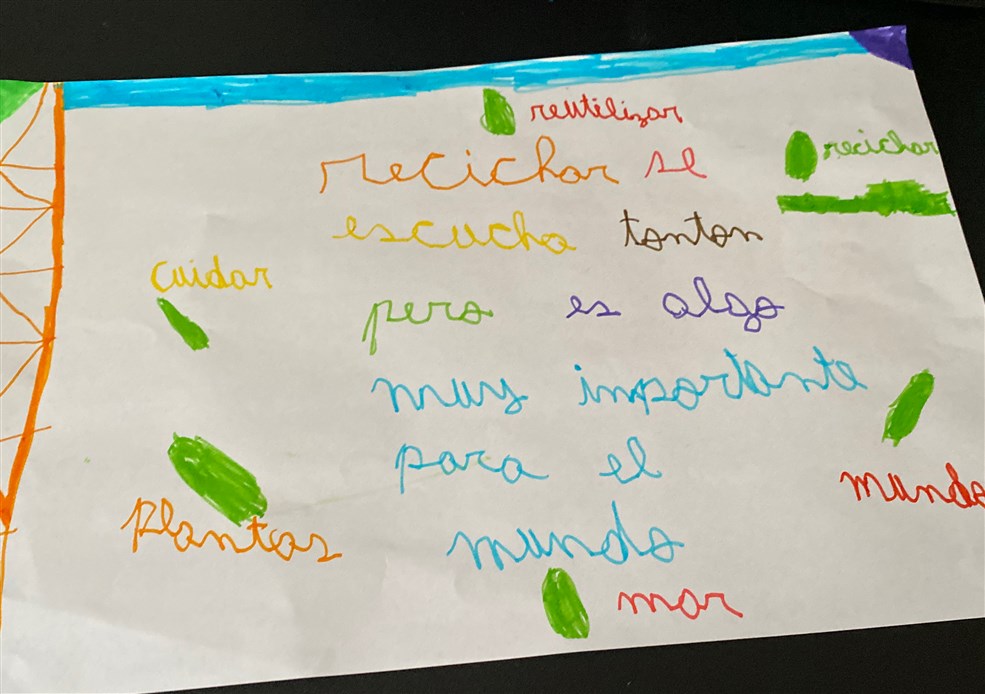 reutilizar
recichar
recichar se
escucha tonton
cuidar
pero es algo
muy importante
para el
mundo
mundo
plantas
mar